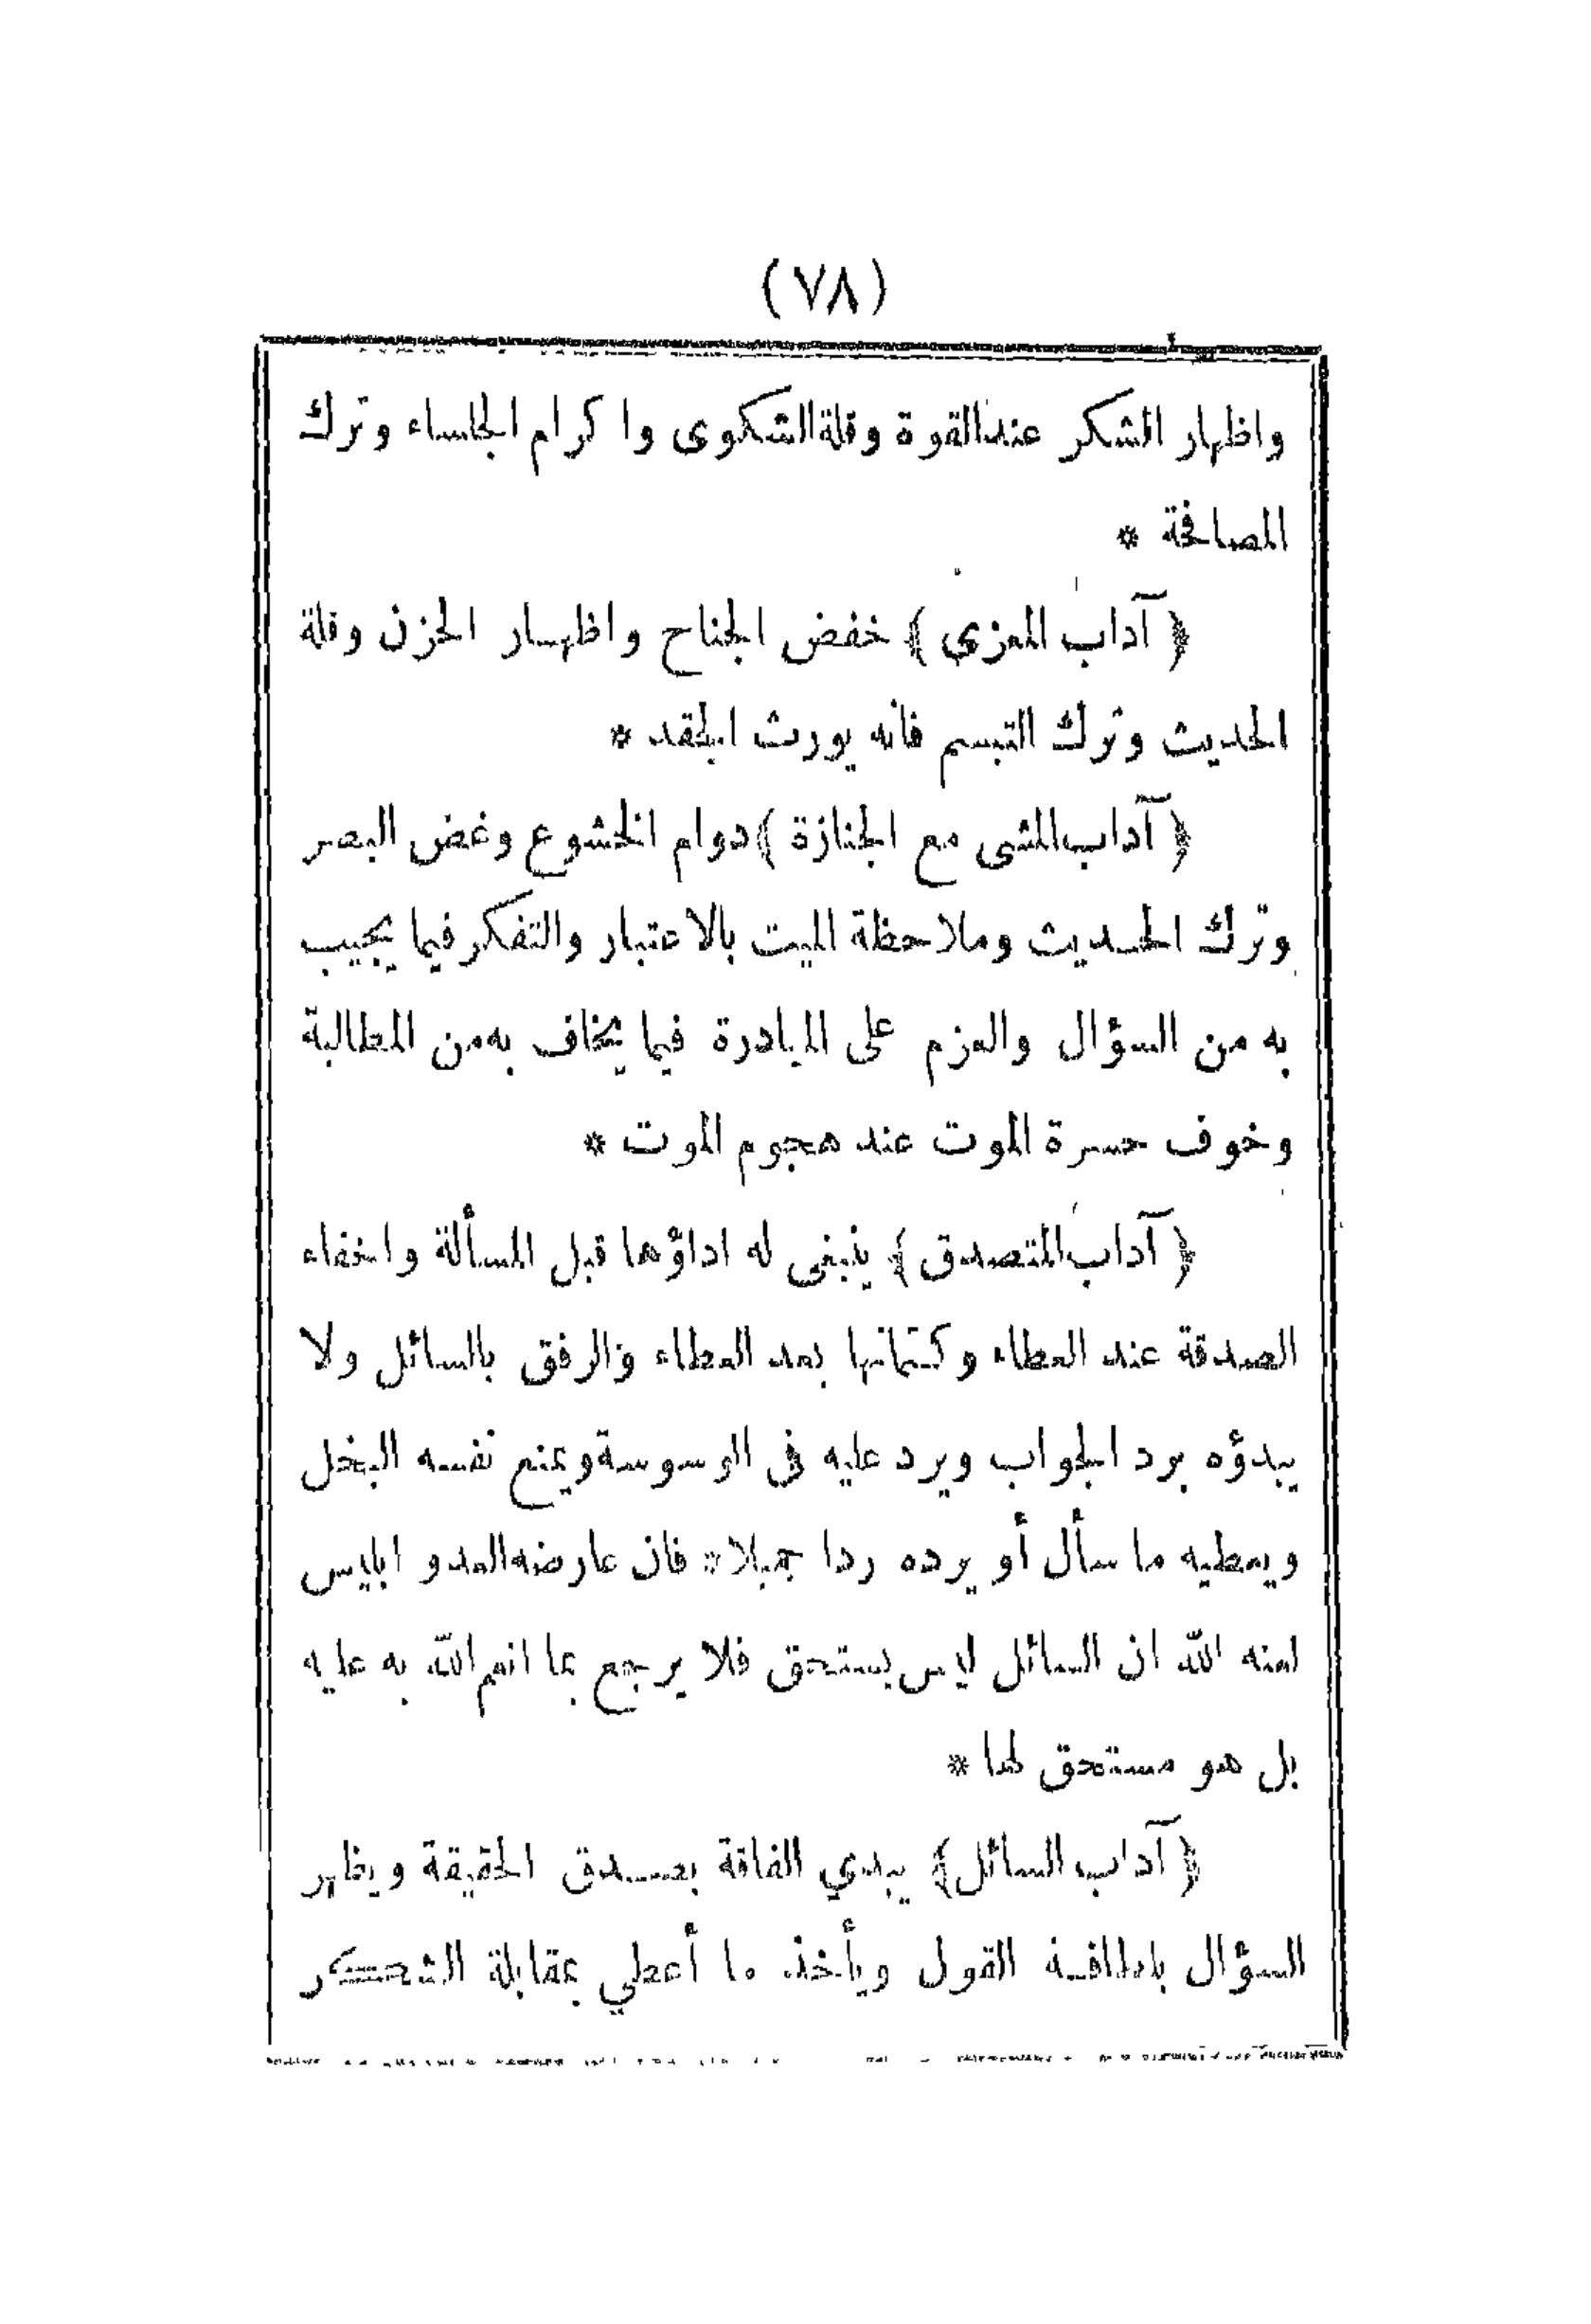 (٧٨)
واظهار الشكر عند القوة وقلة الشكوى واكرام الجلساء وترك
المصافحة *
﴿ آداب المعزي ﴾ خفض الجناح واظهار الحزن وقلة
الحديث وترك التبسم فانه يورث الحقد *
﴿ آداب المشى مع الجنازة ﴾ دوام الخشوع وغض البصر
وترك الحديث وملاحظة الميت بالاعتبار والتفكر فيما يجيب
به من السؤال والعزم على المبادرة فيما يخاف به من المطالبة
وخوف حسرة الموت عند هجوم الموت *
﴿ آداب المتصدق ﴾ ينبغى له اداؤها قبل المسألة واخفاء
الصدقة عند العطاء وكتمانها بعد العطاء والرفق بالسائل ولا
يبدؤه برد الجواب ويرد عليه فى الوسوسة ويمنع نفسه البخل
ويعطيه ما سأل أو يرده ردا جميلا * فان عارضه العدو ابليس
لعنه الله ان السائل ليس يستحق فلا يرجع بما انعم الله به عليه
بل هو مستحق لها *
﴿ آداب السائل ﴾ يبدي الفاقة بصدق الحقيقة ويظهر
السؤال بلطافة القول ويأخذ ما أعطي بمقابلة الشكر